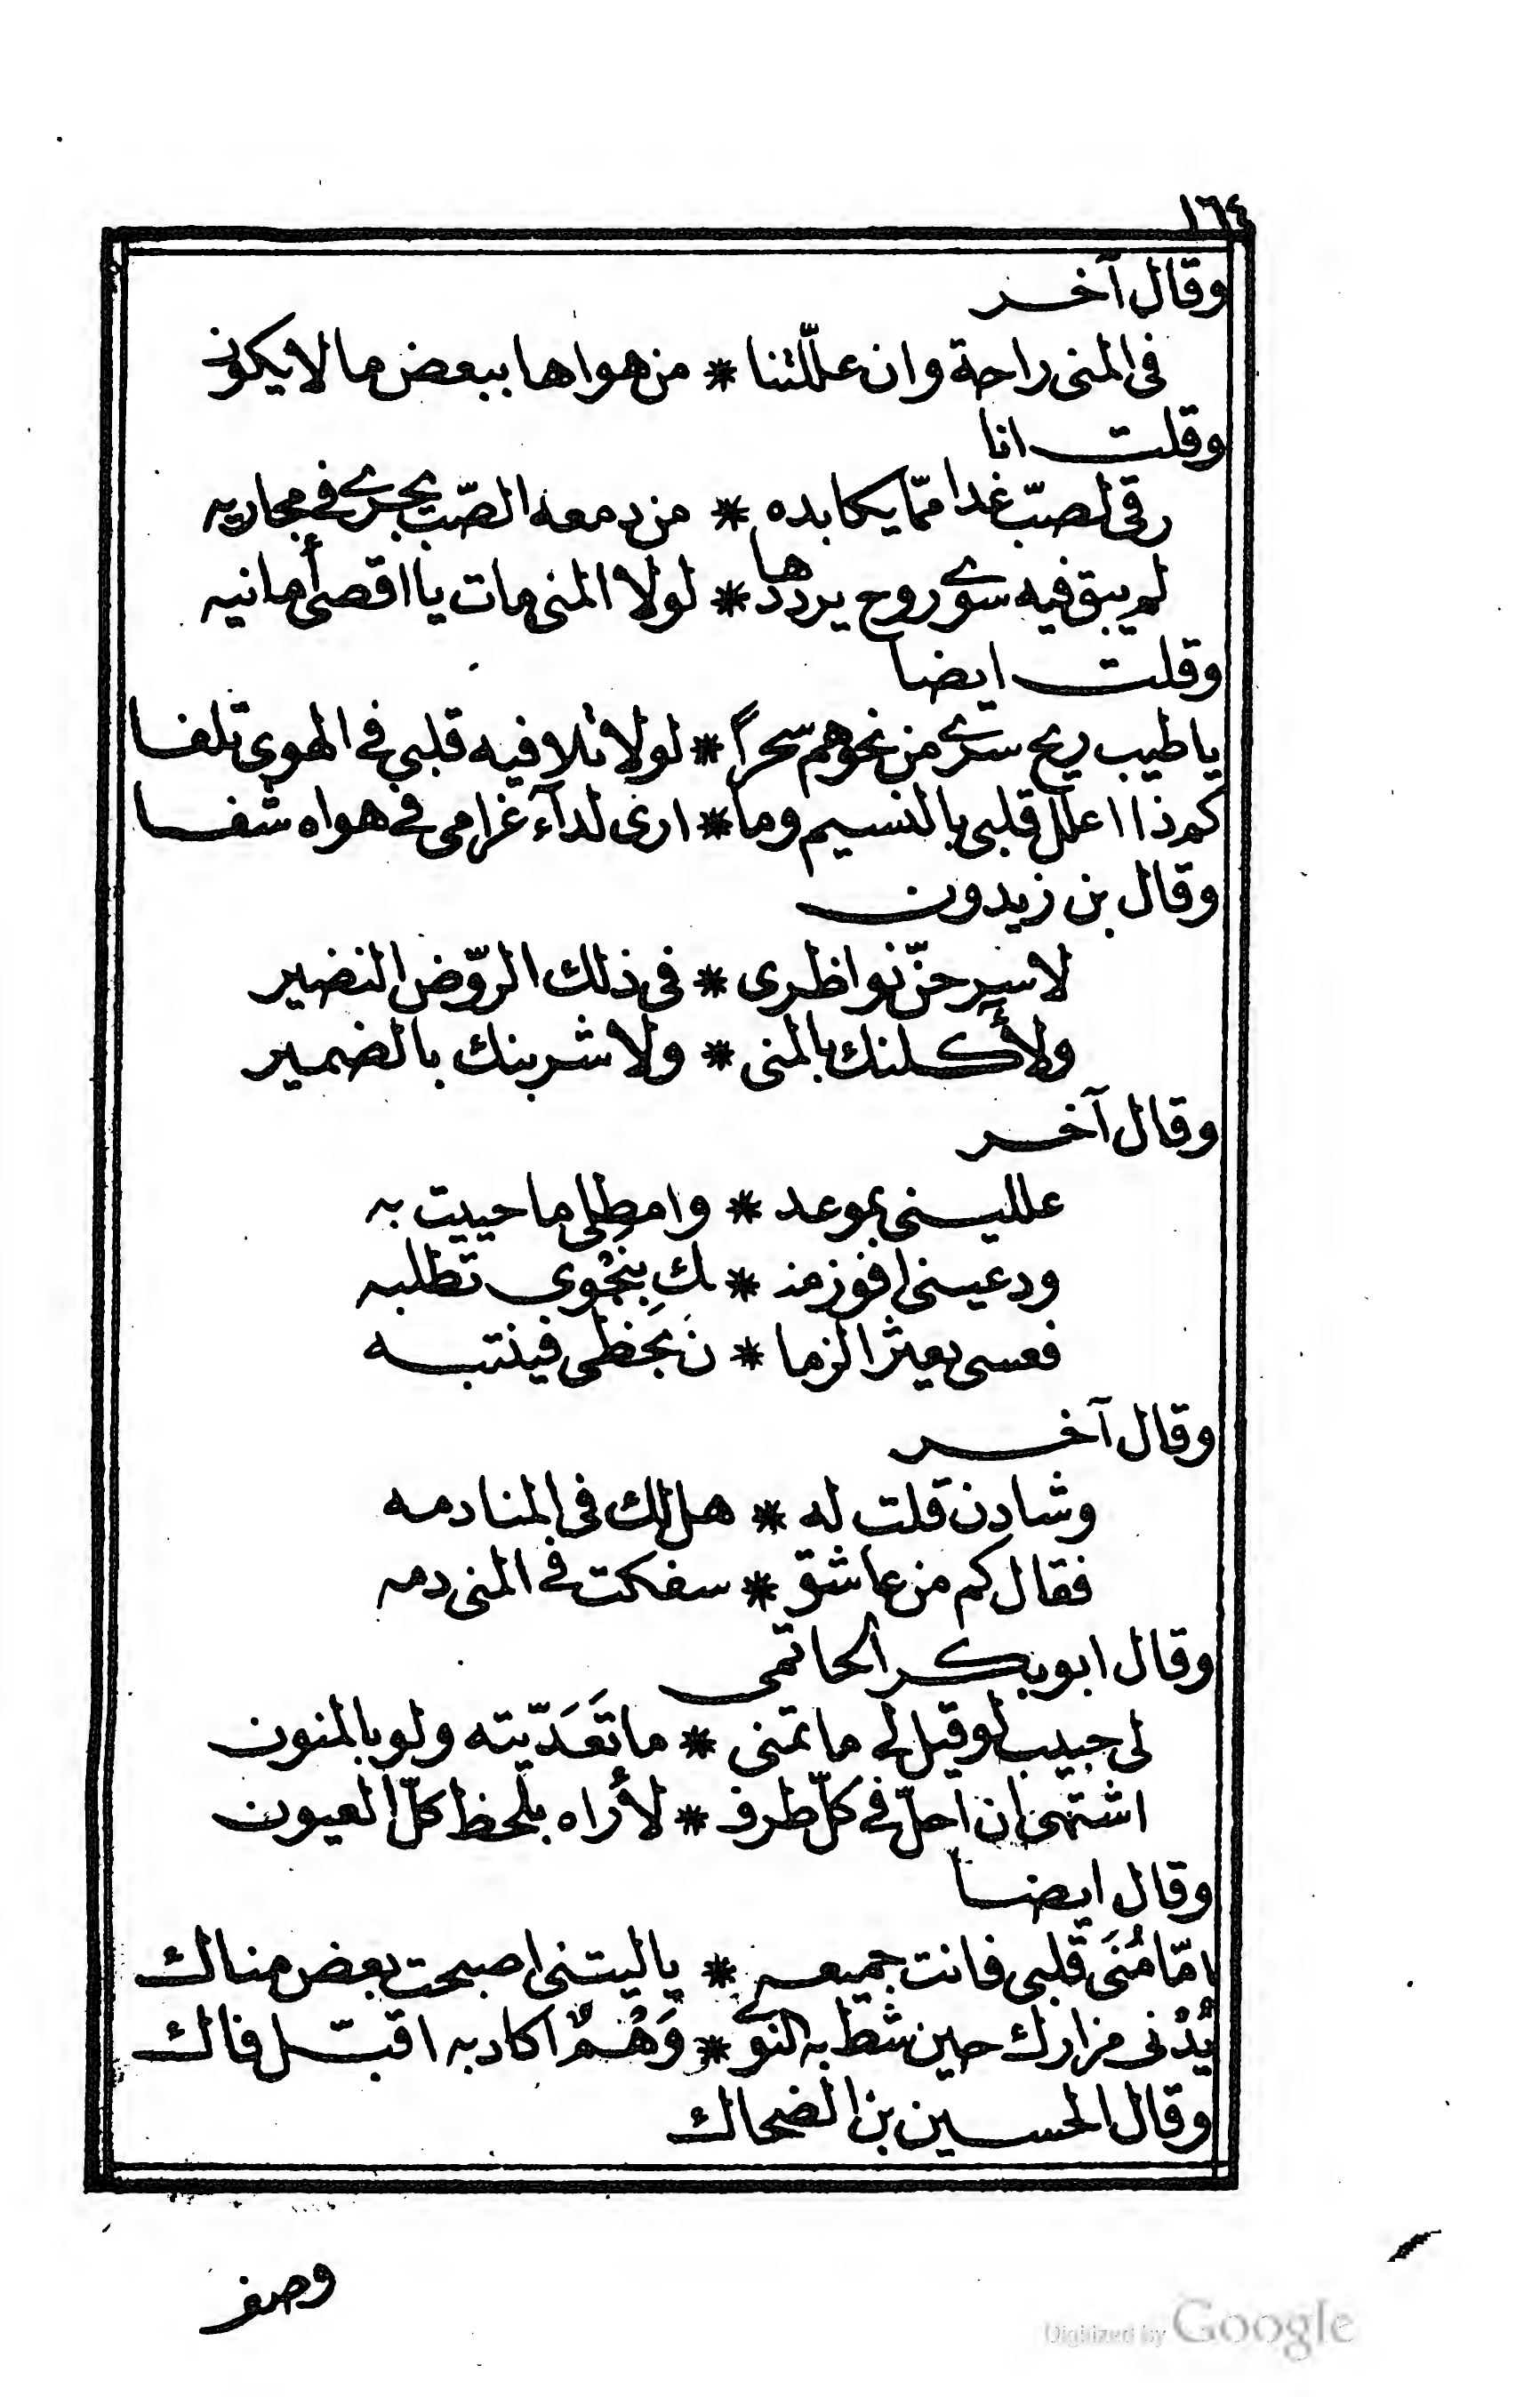 ١٦٤
وقال آخر
فى المنى راحة وان علّلتنا * من هواها ببعض ما لا يكون
وقلت انا
رقى لصبّ غدا ممّا يكابده * من دمعه الصّبّ يجرى فى مجاريه
لم يبق فيه سوى روح يرددها * لولا المنى مات يا اقصى أمانيه
وقلت ايضا
يا طيب ريح سرى من نحوهم سحراً * لولا تلافيه قلبى فى الهوى تلفا
كم ذا اعلل قلبى بالنسيم وما * ارى لدآء غرامى فى هواه شفا
وقال بن زيدون
لاسرحنّ نواظرى * فى ذلك الرّوض النضير
ولأكلنك بالمنى * ولاشربنك بالضمير
وقال آخر
عللينى بموعد * وامطلى ما حييت به
ودعينى افوز منـ * ـكِ بِنَجْوى تطلبه
فعسى يعثر الزما * نَ بَحَظى فينتبه
وقال آخر
وشادن قلت له * هل لك فى المنادمه
فقال كم من عاشق * سفكت فى المنى دمه
وقال ابو بكر الحاتمى
لى حبيب لو قيل لى ما تمنى * ما تَعَدَّيته ولو بالمنون
اشتهى ان احلّ فى كلّ طرف * لأراه بلحظ كلّ العيون
وقال ايضا
امّا مُنَى قلبى فانت جميعه * يا ليتنى اصبحت بعض مناك
يُدْنى مزارك حين شط به النوى * وَهْمٌ اكاد به اقبّل فاك
وقال الحسين بن الضحاك
وصف
Digitized by Google